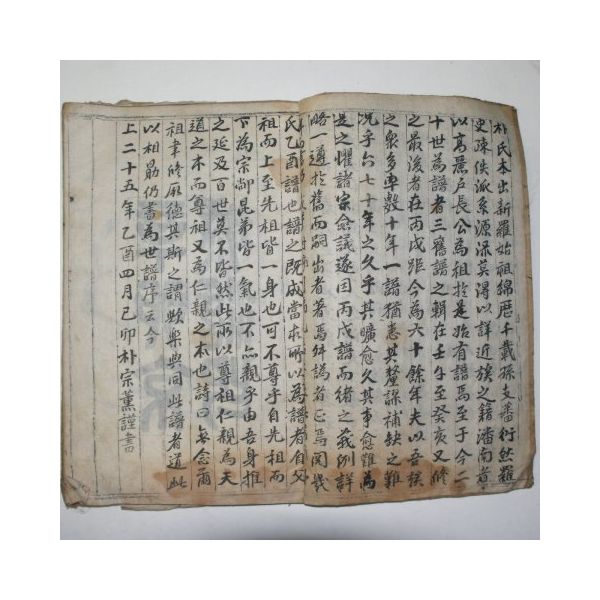 朴氏本出新羅始祖綿歷千載孫支蕃衍然羅
史疎佚派系源流莫得以詳近族之籍潘南者
以高麗戶長公為祖於是始有譜焉至于今二
十世為譜者三舊譜之輯在壬午至癸亥又修
之最後者在丙戌距今為六十餘年夫以吾族
之衆多車數十年一譜猶患其釐誤補缺之難
況乎六七十年之久乎其曠愈久其事愈難為
是之懼諸宗僉議遂因丙戌譜而緒之義例詳
略一遵於舊而嗣出者著焉舛譌者正焉閱幾
氏乙酉譜也譜之既成當求所以為譜者自父
祖而上至先祖皆一身也可不尊乎自先祖而
下為宗郡昆弟皆一氣也不亦親乎由吾身推
之延及百世莫不皆然此所以尊祖仁親為夫
道之本而尊祖又為仁親之本也詩曰無念爾
祖聿修厥德其斯之謂歟樂與同此譜者道此
以相勗仍書為世譜序云今
上二十五年乙酉四月己卯朴宗薰謹書